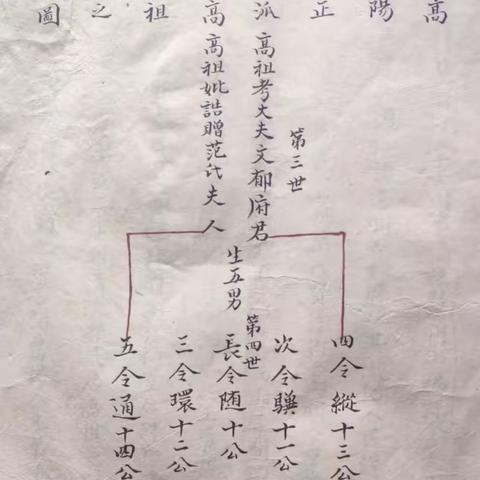 高陽正派高祖之圖
第三世
高祖考大夫文郁府君
高祖妣誥贈范氏夫人
生五男
第四世
四令縱十三公
次令驥十一公
長令随十公
三令環十二公
五令通十四公